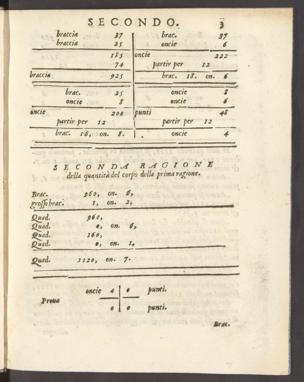 SECONDO. 3
braccia 37 brac. 37
braccia 25 oncie 6
185 oncie 222
74 partir per 12
braccia 925 brac. 18. on. 6
brac. 25 oncie 8
oncie 8 oncie 6
oncie 200 punti 48
partir per 12 partir per 12
brac. 16, on. 8. oncie 4
SECONDA RAGIONE
della quantità del corpo della prima ragione.
Brac. 960, on. 6,
grosso brac. 1, on. 2,
Quad. 960,
Quad. 0, on. 6,
Quad. 160,
Quad. 0, on. 1,
Quad. 1120, on. 7.
oncie 4 0 punti.
Prova
0 0 punti.
Brac.